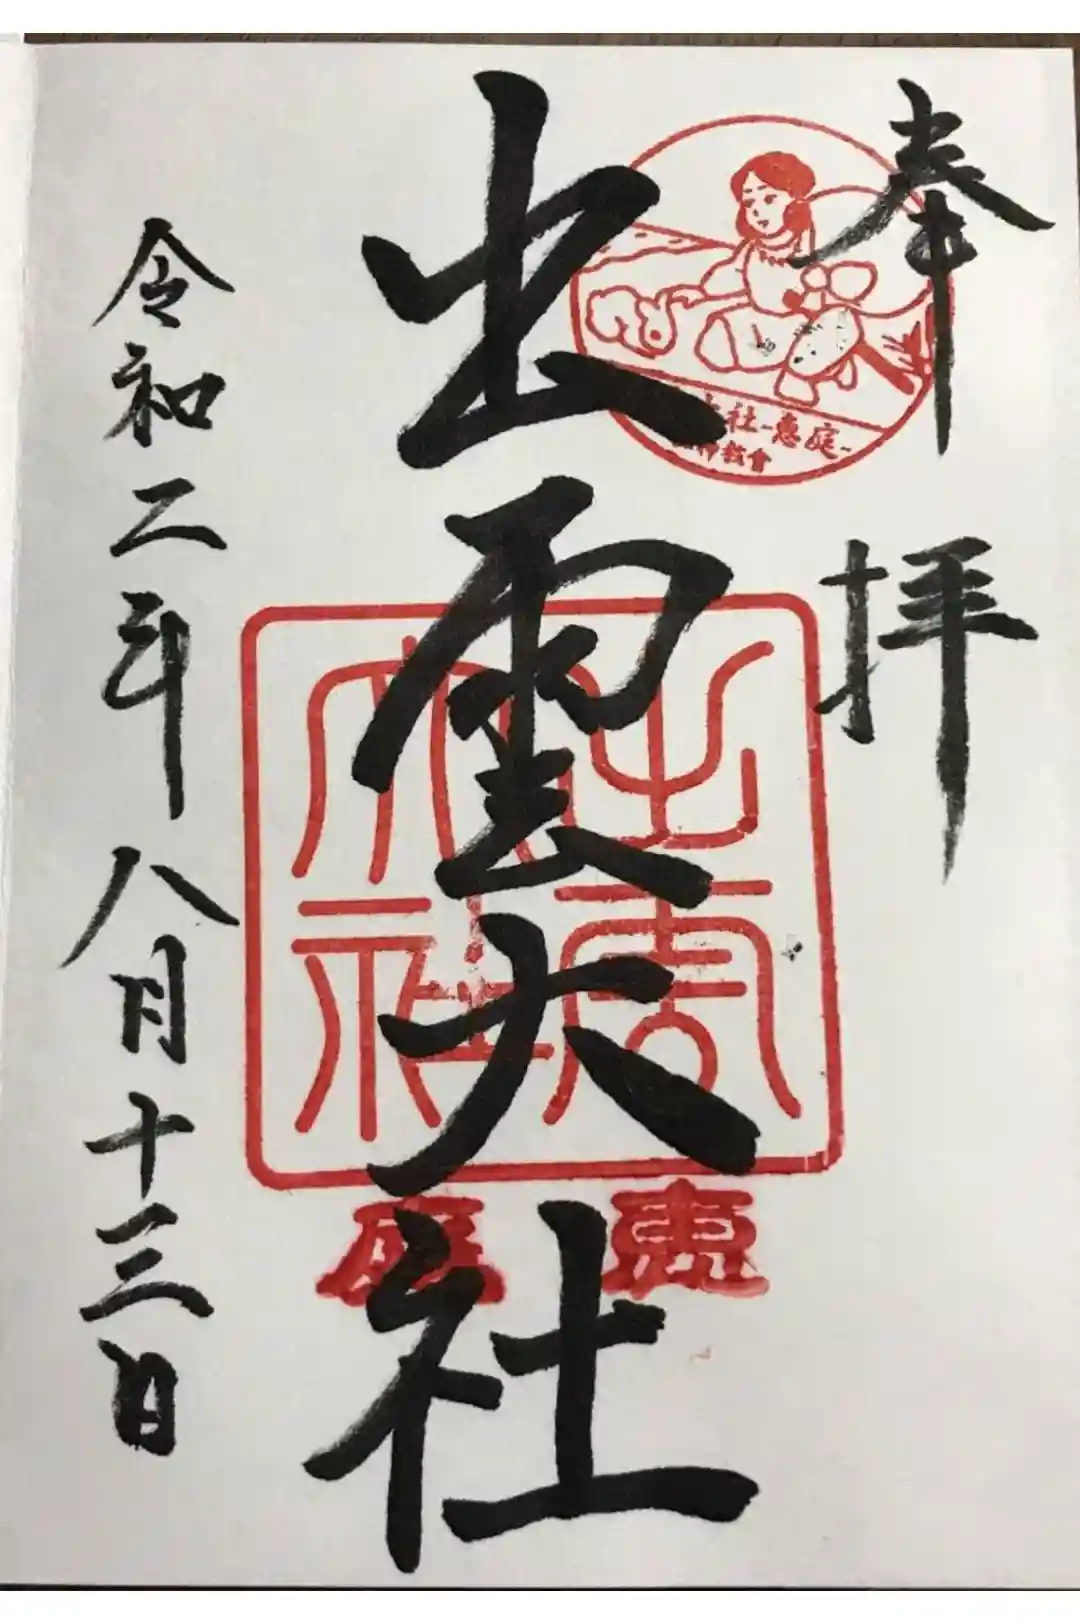 奉拝
社-恵庭-
教會
出雲大社
出雲
大社
恵
庭
令和二年八月十三日